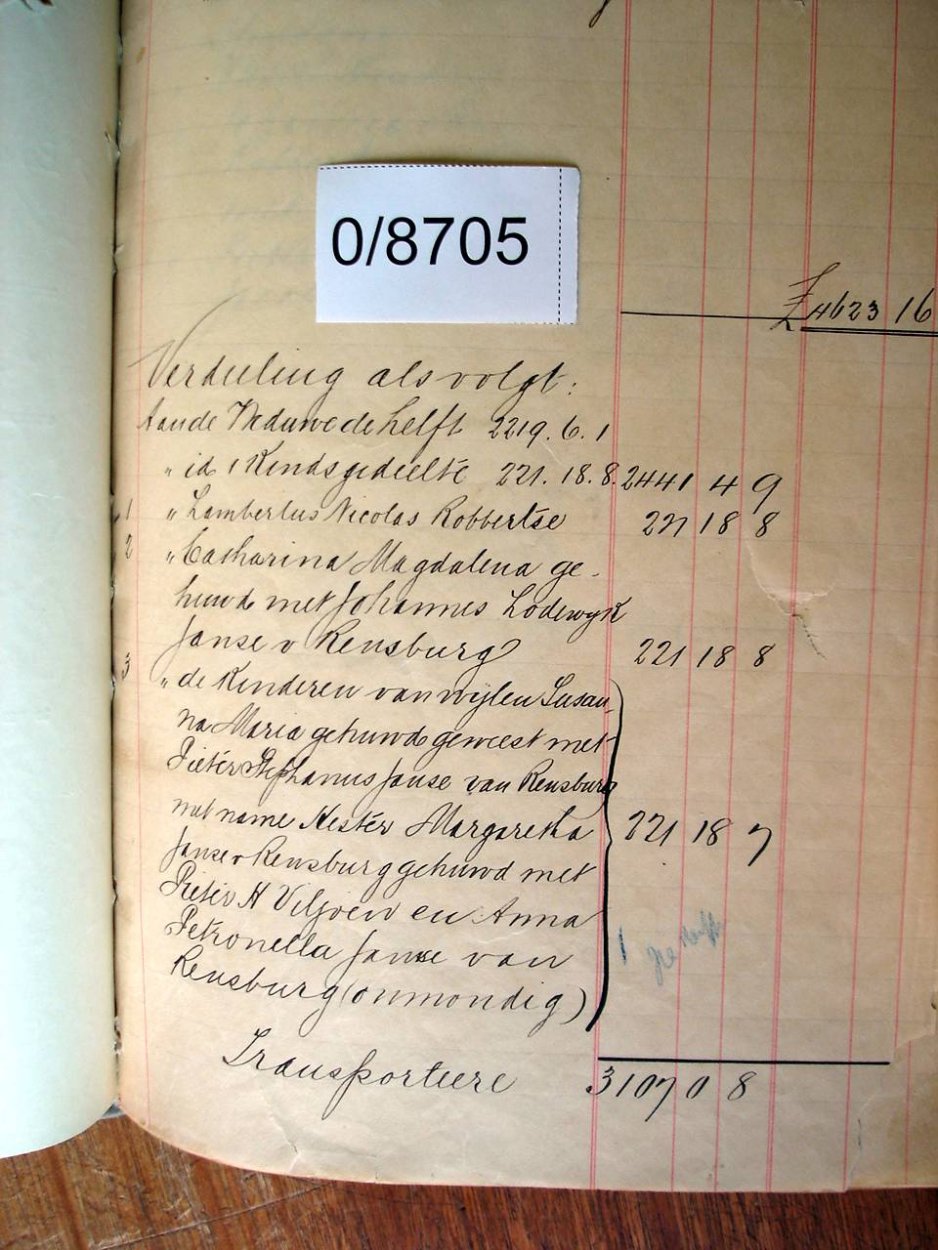 0/8705
£4623 16
Verdeeling als volgt:
Aan de Weduwe de helft 2219. 6. 1
" id 1 Kindsgedeelte 221. 18. 8. 2441 4 9
1 " Lambertus Nicolas Robbertse 221 18 8
2 " Catharina Magdalena ge-
huwd met Johannes Lodewyk
Janse v Rensburg 221 18 8
3 " de Kinderen van wijlen Susan-
na Maria gehuwd geweest met
Pieter Stephanus Janse van Rensburg
met name Hester Margaretha 221 18 7
Janse v Rensburg gehuwd met
Pieter H Viljoen en Anna
Petronella Janse van 1
Rensburg (onmondig)
Transporteere 3107 0 8